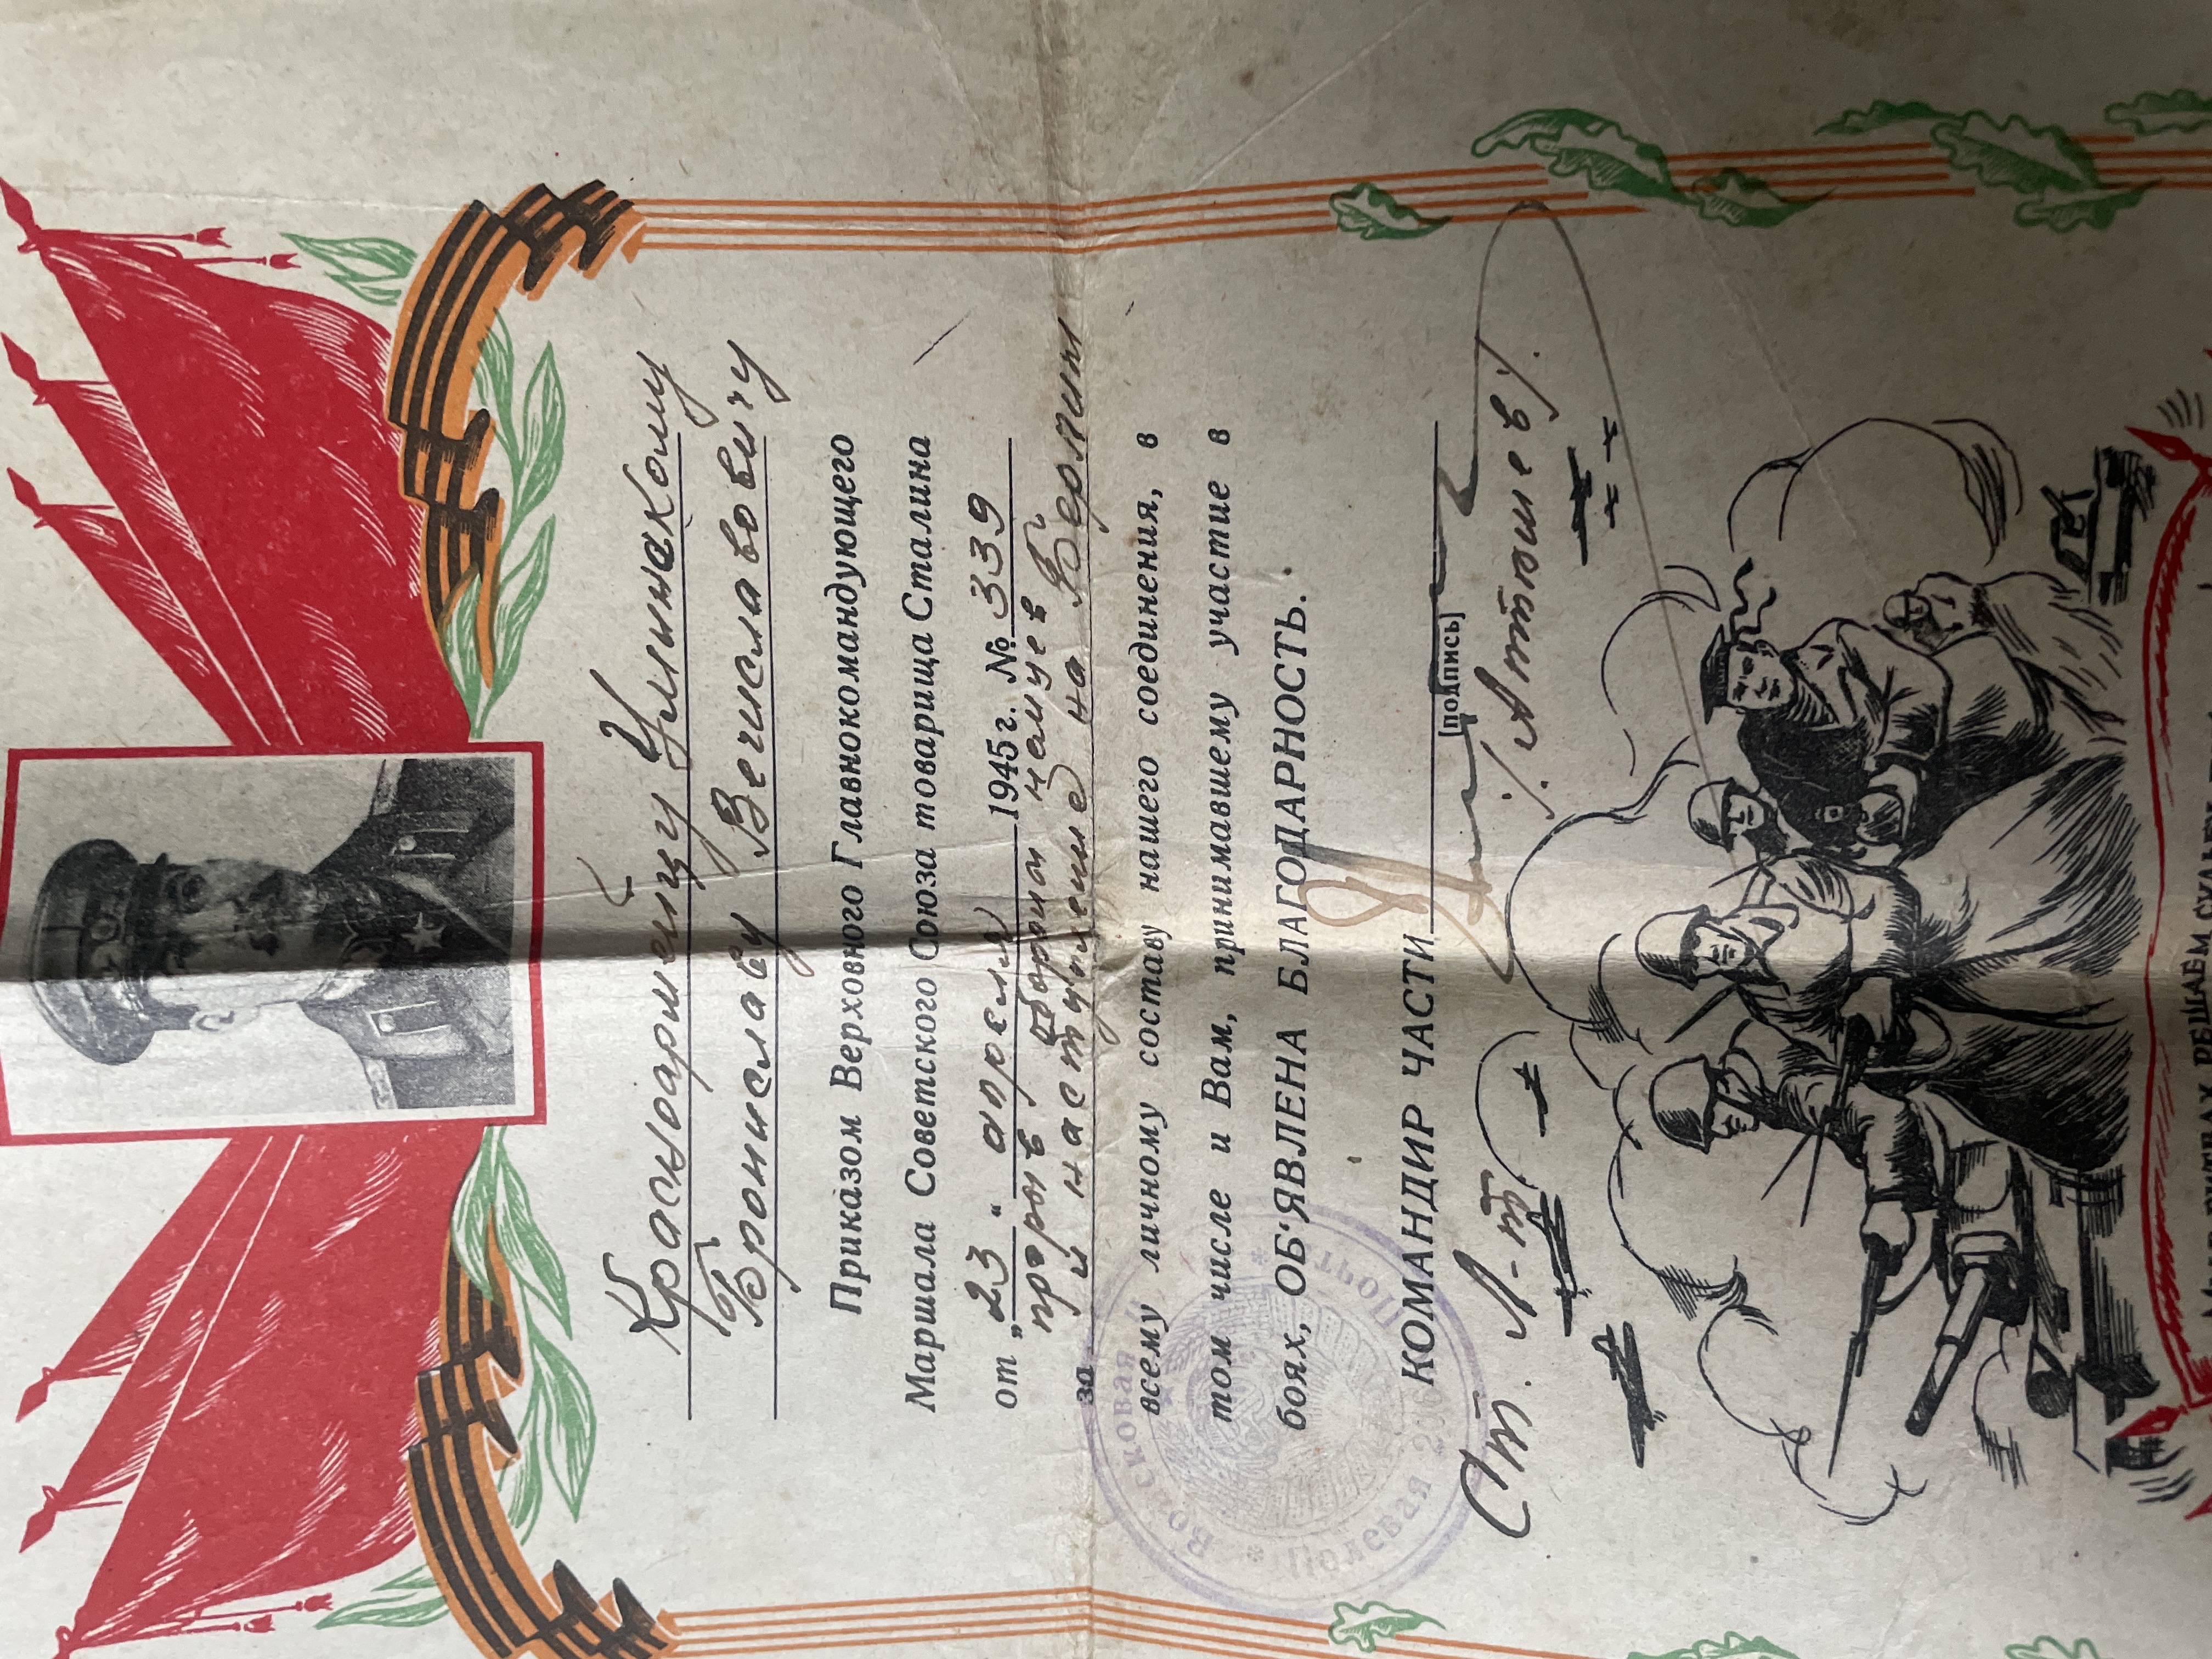 Красноармейцу Улинскому
Брониславу Вечиславовичу
Приказом Верховного Главнокомандующего
Маршала Советского Союза товарища Сталина
от „23“ апреля 1945 г. № 339
прорыв обороны немцев
за и наступление на Берлин
всему личному составу нашего соединения, в
том числе и Вам, принимавшему участие в
боях, ОБ'ЯВЛЕНА БЛАГОДАРНОСТЬ.
КОМАНДИР ЧАСТИ
[подпись]
Ст. Л-т /.Артюшев/.
Войсковая
Полевая Почта